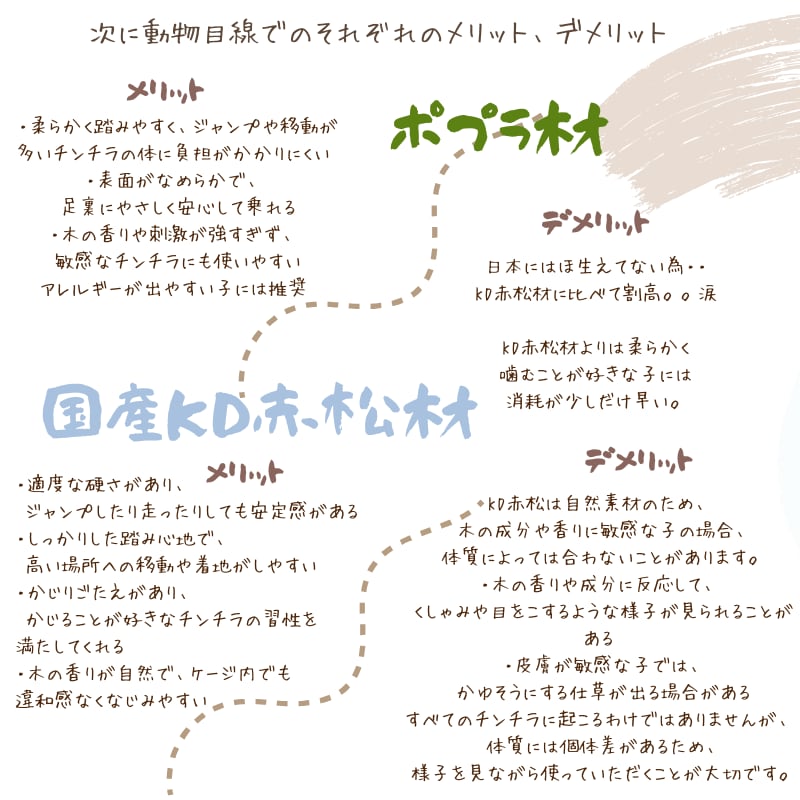 次に動物目線でのそれぞれのメリット、デメリット
ポプラ材
メリット
・柔らかく踏みやすく、ジャンプや移動が
多いチンチラの体に負担がかかりにくい
・表面がなめらかで、
足裏にやさしく安心して乗れる
・木の香りや刺激が強すぎず、
敏感なチンチラにも使いやすい
アレルギーが出やすい子には推奨
デメリット
日本にはほ生えてない為・・
KD赤松材に比べて割高。。涙
KD赤松材よりは柔らかく
噛むことが好きな子には
消耗が少しだけ早い。
国産KD赤松材
メリット
・適度な硬さがあり、
ジャンプしたり走ったりしても安定感がある
・しっかりした踏み心地で、
高い場所への移動や着地がしやすい
・かじりごたえがあり、
かじることが好きなチンチラの習性を
満たしてくれる
・木の香りが自然で、ケージ内でも
違和感なくなじみやすい
デメリット
・KD赤松は自然素材のため、
木の成分や香りに敏感な子の場合、
体質によっては合わないことがあります。
・木の香りや成分に反応して、
くしゃみや目をこするような様子が見られることが
ある
・皮膚が敏感な子では、
かゆそうにする仕草が出る場合がある
すべてのチンチラに起こるわけではありませんが、
体質には個体差があるため、
様子を見ながら使っていただくことが大切です。